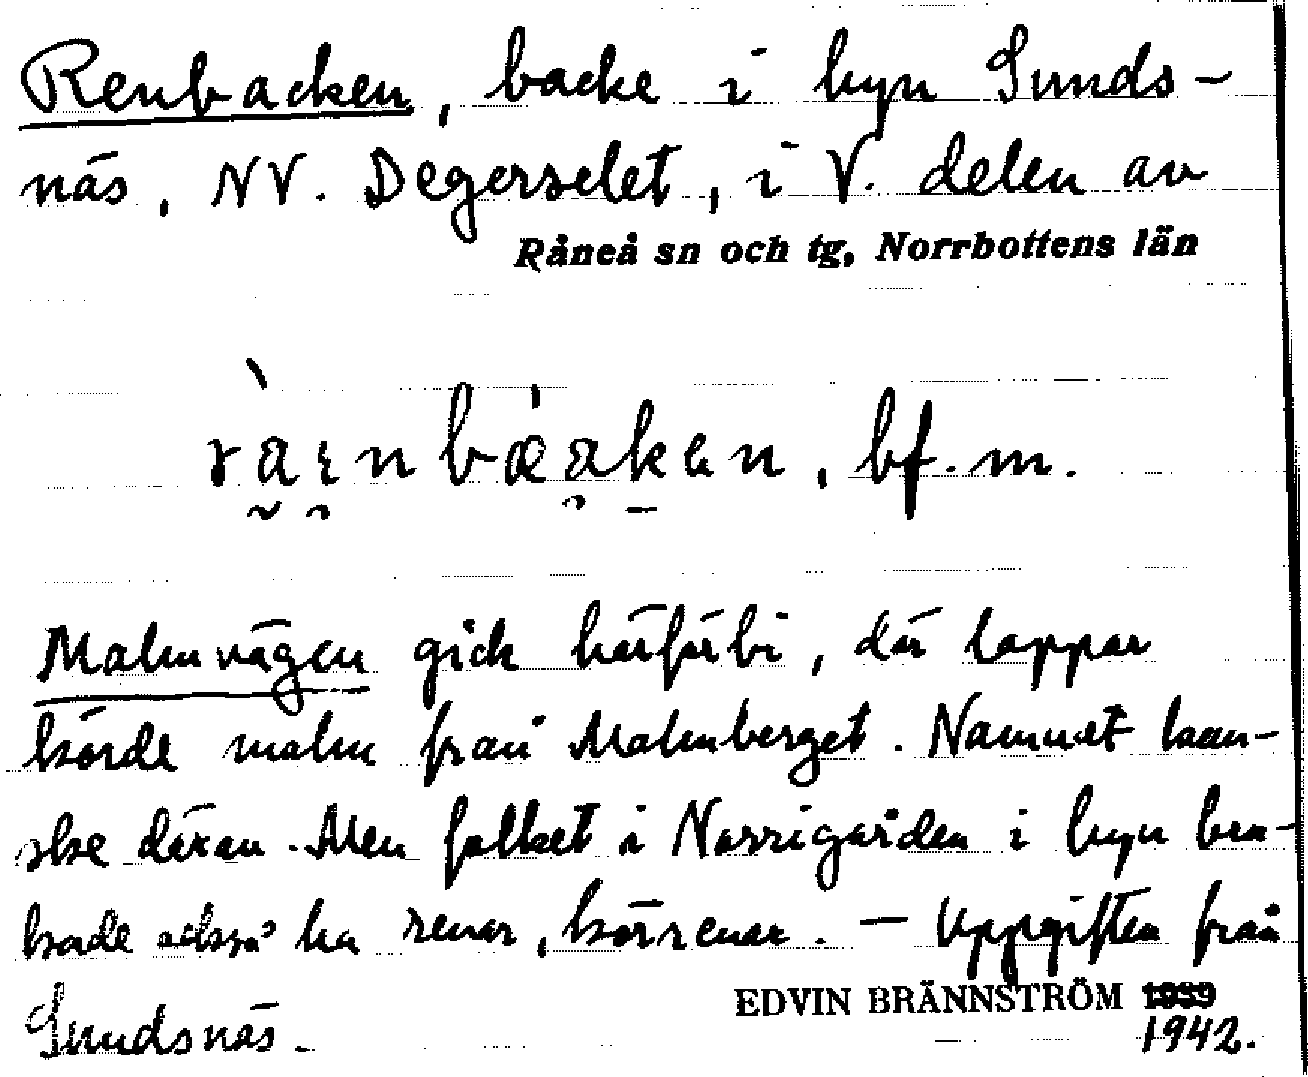 Renbacken, backe i byn Sunds-
näs, NV. Degerselet, i V. delen av
Råneå sn och tg, Norrbottens län
bf. m.
Malmvägen gick härförbi, där lappar
körde malm från Malmberget. Namnet kan-
ske därav. Men folket i Norrigården i byn bru-
kade också ha renar, körrenar. — Uppgiften från
Sundsnäs.
EDVIN BRÄNNSTRÖM 1939
1942.